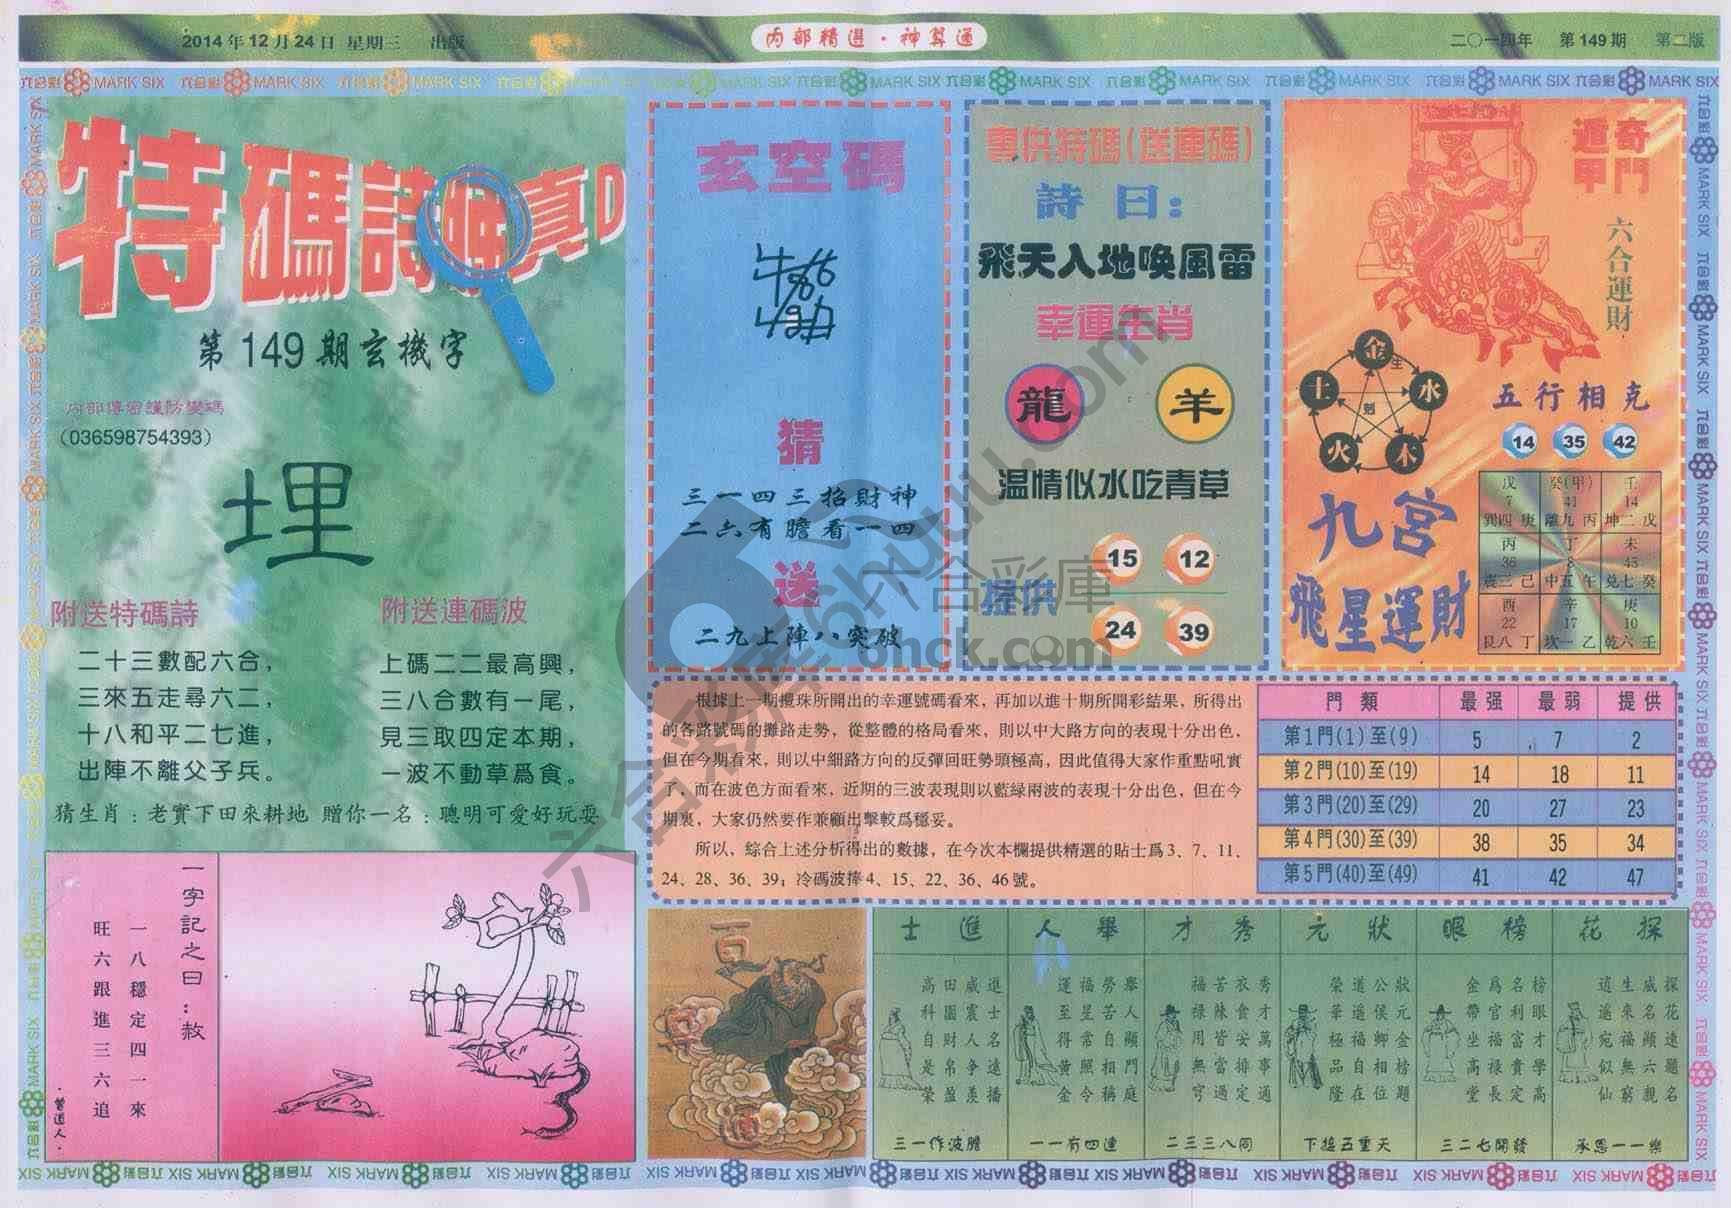 2014年12月24日 星期三 出版
内部精選·神算通
二〇一四年 第149期 第二版
六合彩 MARK SIX
特碼詩
真
第149期玄機字
内部傳密護防變碼
(036598754393)
埋
附送特碼詩
二十三數配六合，
三來五走尋六二，
十八和平二七進，
出陣不離父子兵。
附送連碼波
上碼二二最高興，
三八合數有一尾，
見三取四定本期，
一波不動草爲食。
猜生肖：老實下田來耕地 贈你一名：聰明可愛好玩耍
一字記之曰：赦
一八穩定四一來
旺六跟進三六追
·曾道人·
玄空碼
猜
三一四三招財神
二六有膽看一四
送
二九上陣八突破
專供特碼(送連碼)
詩曰：
飛天入地喚風雷
幸運生肖
龍 羊
温情似水吃青草
提供
15 12
24 39
奇門遁甲
六合運財
金 水 木 火 土
生
剋
五行相克
14 35 42
九宮
飛星運財
戊 癸(甲) 壬
7 41 14
巽四 庚 離九 丙 坤二 戊
丙 丁 未
36 8 45
震三 己 中五 午 兑七 癸
酉 辛 庚
22 17 10
艮八 丁 坎一 乙 乾六 壬
根據上一期攪珠所開出的幸運號碼看來，再加以進十期所開彩結果，所得出
的各路號碼的攤路走勢，從整體的格局看來，則以中大路方向的表現十分出色，
但在今期看來，則以中細路方向的反彈回旺勢頭極高，因此值得大家作重點吼實
了，而在波色方面看來，近期的三波表現則以藍緑兩波的表現十分出色，但在今
期裏，大家仍然要作兼顧出擊較爲穩妥。
所以，綜合上述分析得出的數據，在今次本欄提供精選的貼士爲3、7、11、
24、28、36、39；冷碼波捧4、15、22、36、46號。
門類 最强 最弱 提供
第1門(1)至(9) 5 7 2
第2門(10)至(19) 14 18 11
第3門(20)至(29) 20 27 23
第4門(30)至(39) 38 35 34
第5門(40)至(49) 41 42 47
士進 人舉 才秀 元狀 眼榜 花探
進士名遠播
威震人争羨
田園財帛盈
高科自是榮
舉人顯門庭
勞苦自相稱
福星常照令
運至得黄金
秀才萬事通
衣食安排定
苦辣皆當過
福禄用無窮
狀元金榜題
公侯卿相位
道遥福自在
榮華極品隆
榜眼才學高
名利富貴定
爲官福禄長
金帶坐高堂
探花遠題名
威名顯六親
生來福無窮
逍遥宛似仙
三一作波膽
一一有四連
二三三八同
下挹五重天
三二七開發
承恩一一樂
六合彩庫